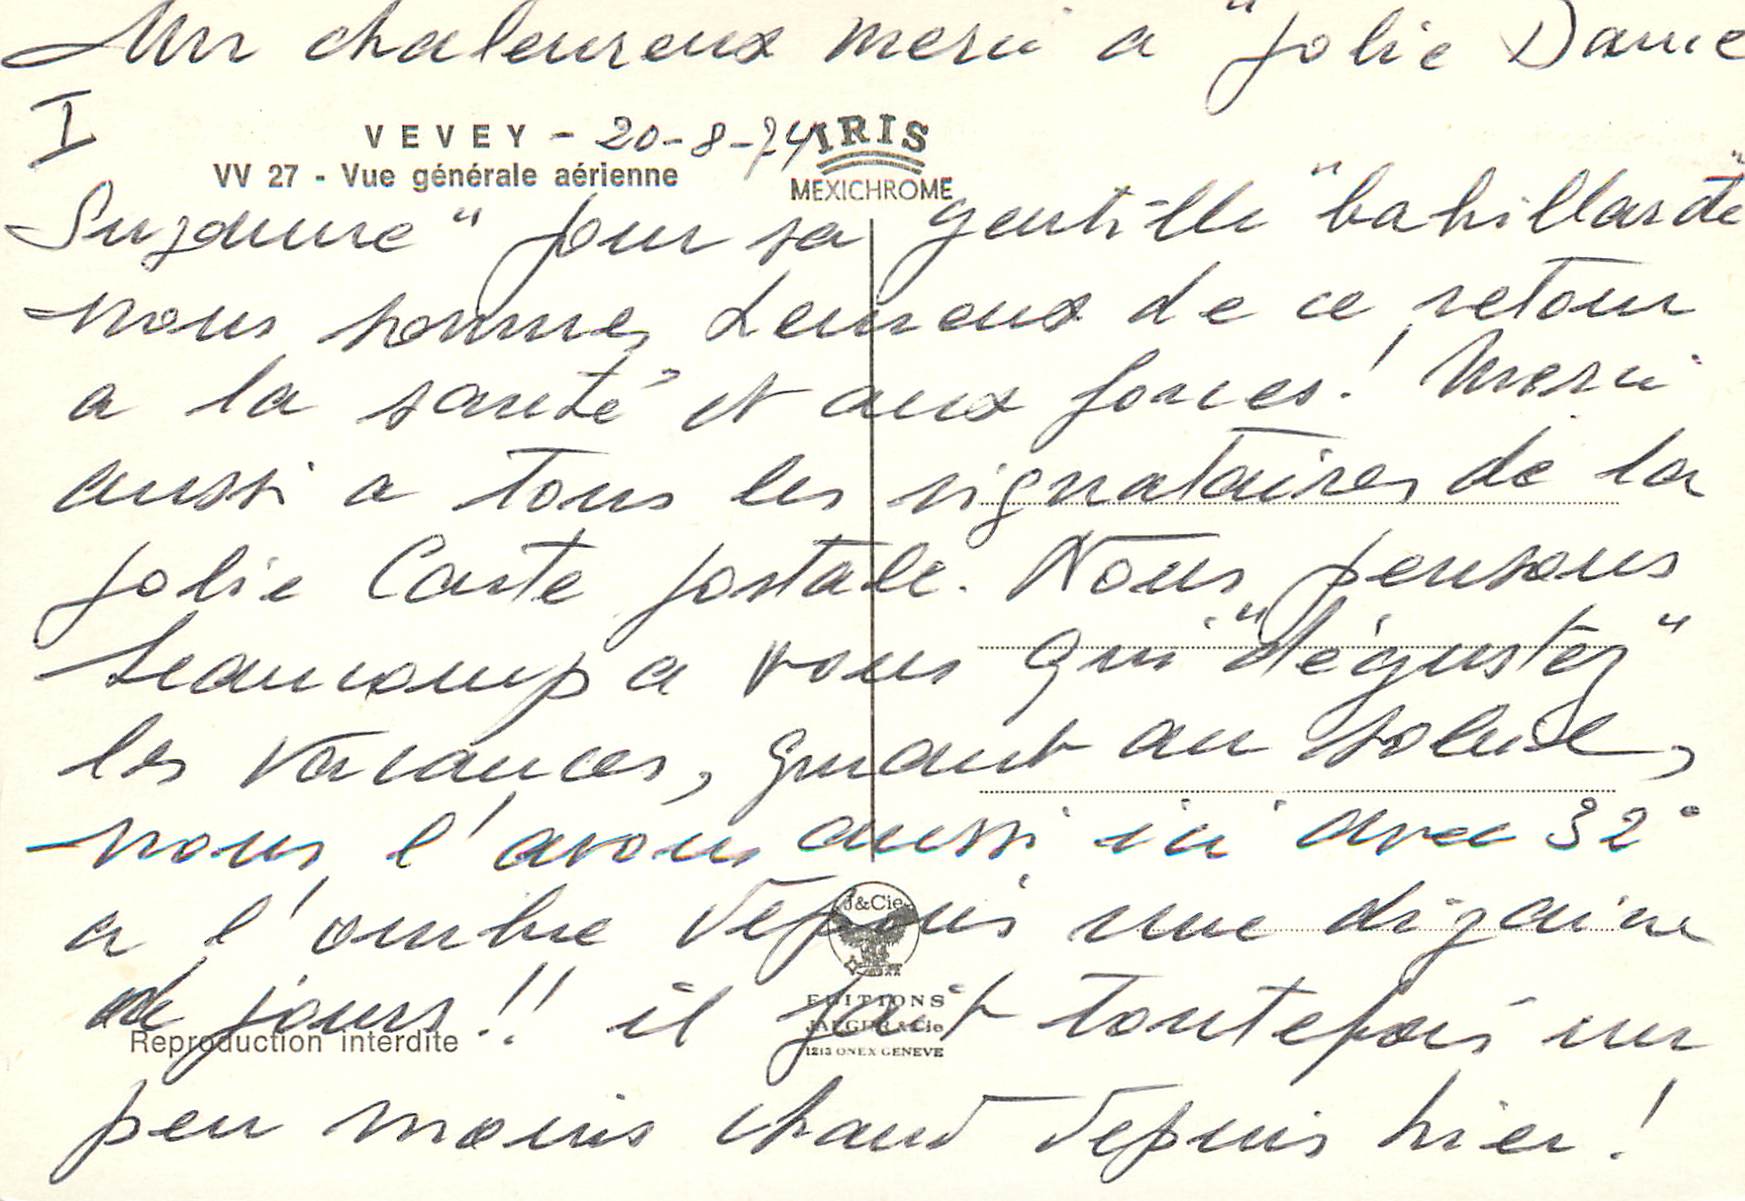 Un chaleureux merci a "Jolie Dame
I
VEVEY - 20-8-74
VV 27 - Vue générale aérienne
IRIS
MEXICHROME
Suzanne" pour sa gentille "babillarde"
nous sommes heureux de ce retour
a la santé et aux forces! Merci
aussi a tous les signataires de la
jolie Carte postale. Nous pensons
beaucoup a vous qui "dégustez"
les vacances, quant au soleil,
nous l'avons aussi ici avec 32°
a l'ombre depuis une dizaine
de jours!! il fait toutefois un
J&Cie
EDITIONS
JAEGER & Cie
1213 ONEX GENEVE
Reproduction interdite
peu moins chaud depuis hier!